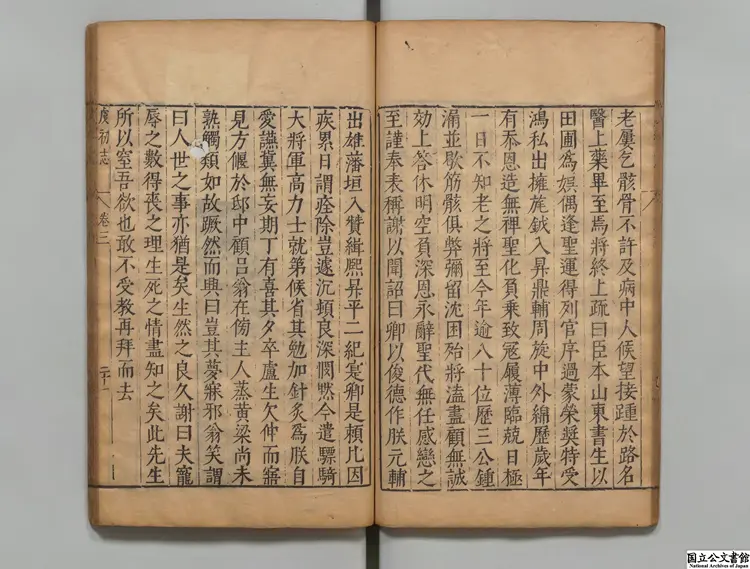 老屢乞骸骨不許及病中人候望接踵於路名
醫上藥畢至焉將終上疏曰臣本山東書生以
田圃爲娛偶逢聖運得列官序過蒙榮奬特受
鴻私出擁旄鉞入昇鼎輔周旋中外綿歷歲年
有忝恩造無裨聖化負乗致寇履薄臨兢日極
一日不知老之將至今年逾八十位歷三公鍾
漏並歇筋骸俱弊彌留沈困殆將溘盡顧無誠
効上答休明空負深恩永辭聖代無任感戀之
至謹奏表稱謝以聞詔曰卿以俊德作朕元輔
出雄藩垣入贊緝熙昇平二紀寔卿是賴比因
疾累日謂痊除豈遽沉頓良深憫黙今遣驃騎
大將軍高力士就第候省其勉加針灸爲朕自
愛讌冀無妄期丁有喜其夕卒盧生欠伸而寤
見方偃於邸中顧呂翁在傍主人蒸黃梁尚未
熟觸類如故蹶然而興曰豈其夢寐邪翁笑謂
曰人世之事亦猶是矣生然之良久謝曰夫寵
辱之數得喪之理生死之情盡知之矣此先生
所以窒吾欲也敢不受教再拜而去
虞初志 卷三 二十一
国立公文書館
National Archives of Japan